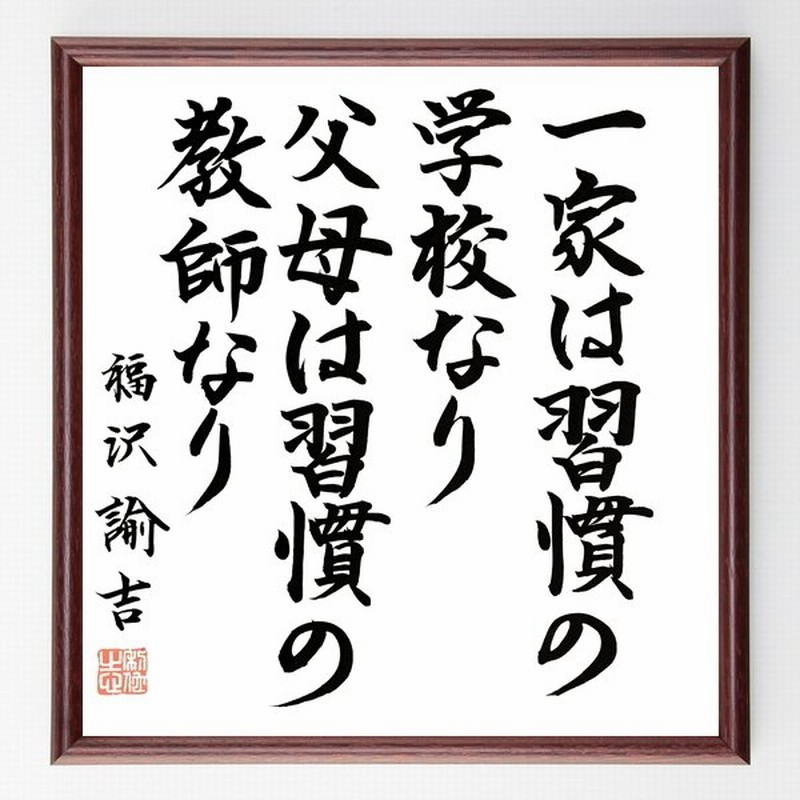 一家は習慣の
学校なり
父母は習慣の
教師なり
福沢諭吉